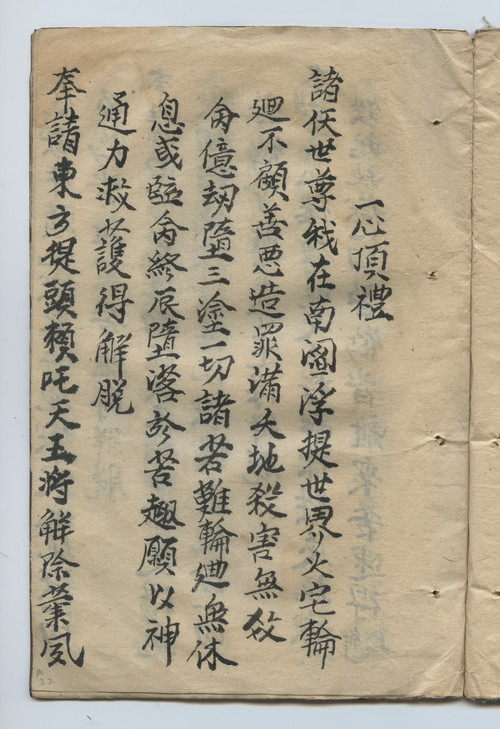 一心頂禮
諸仸世尊我在南阎浮提世界火宅輪
廻不顧善惡造罪滿天地殺害無效
侖億刼墮三塗一切諸苦難輪廻無休
息或臨侖終辰墮落於苦趣願以神
通力救護得解脫
奉請東方提頭賴吒天王將解除業風